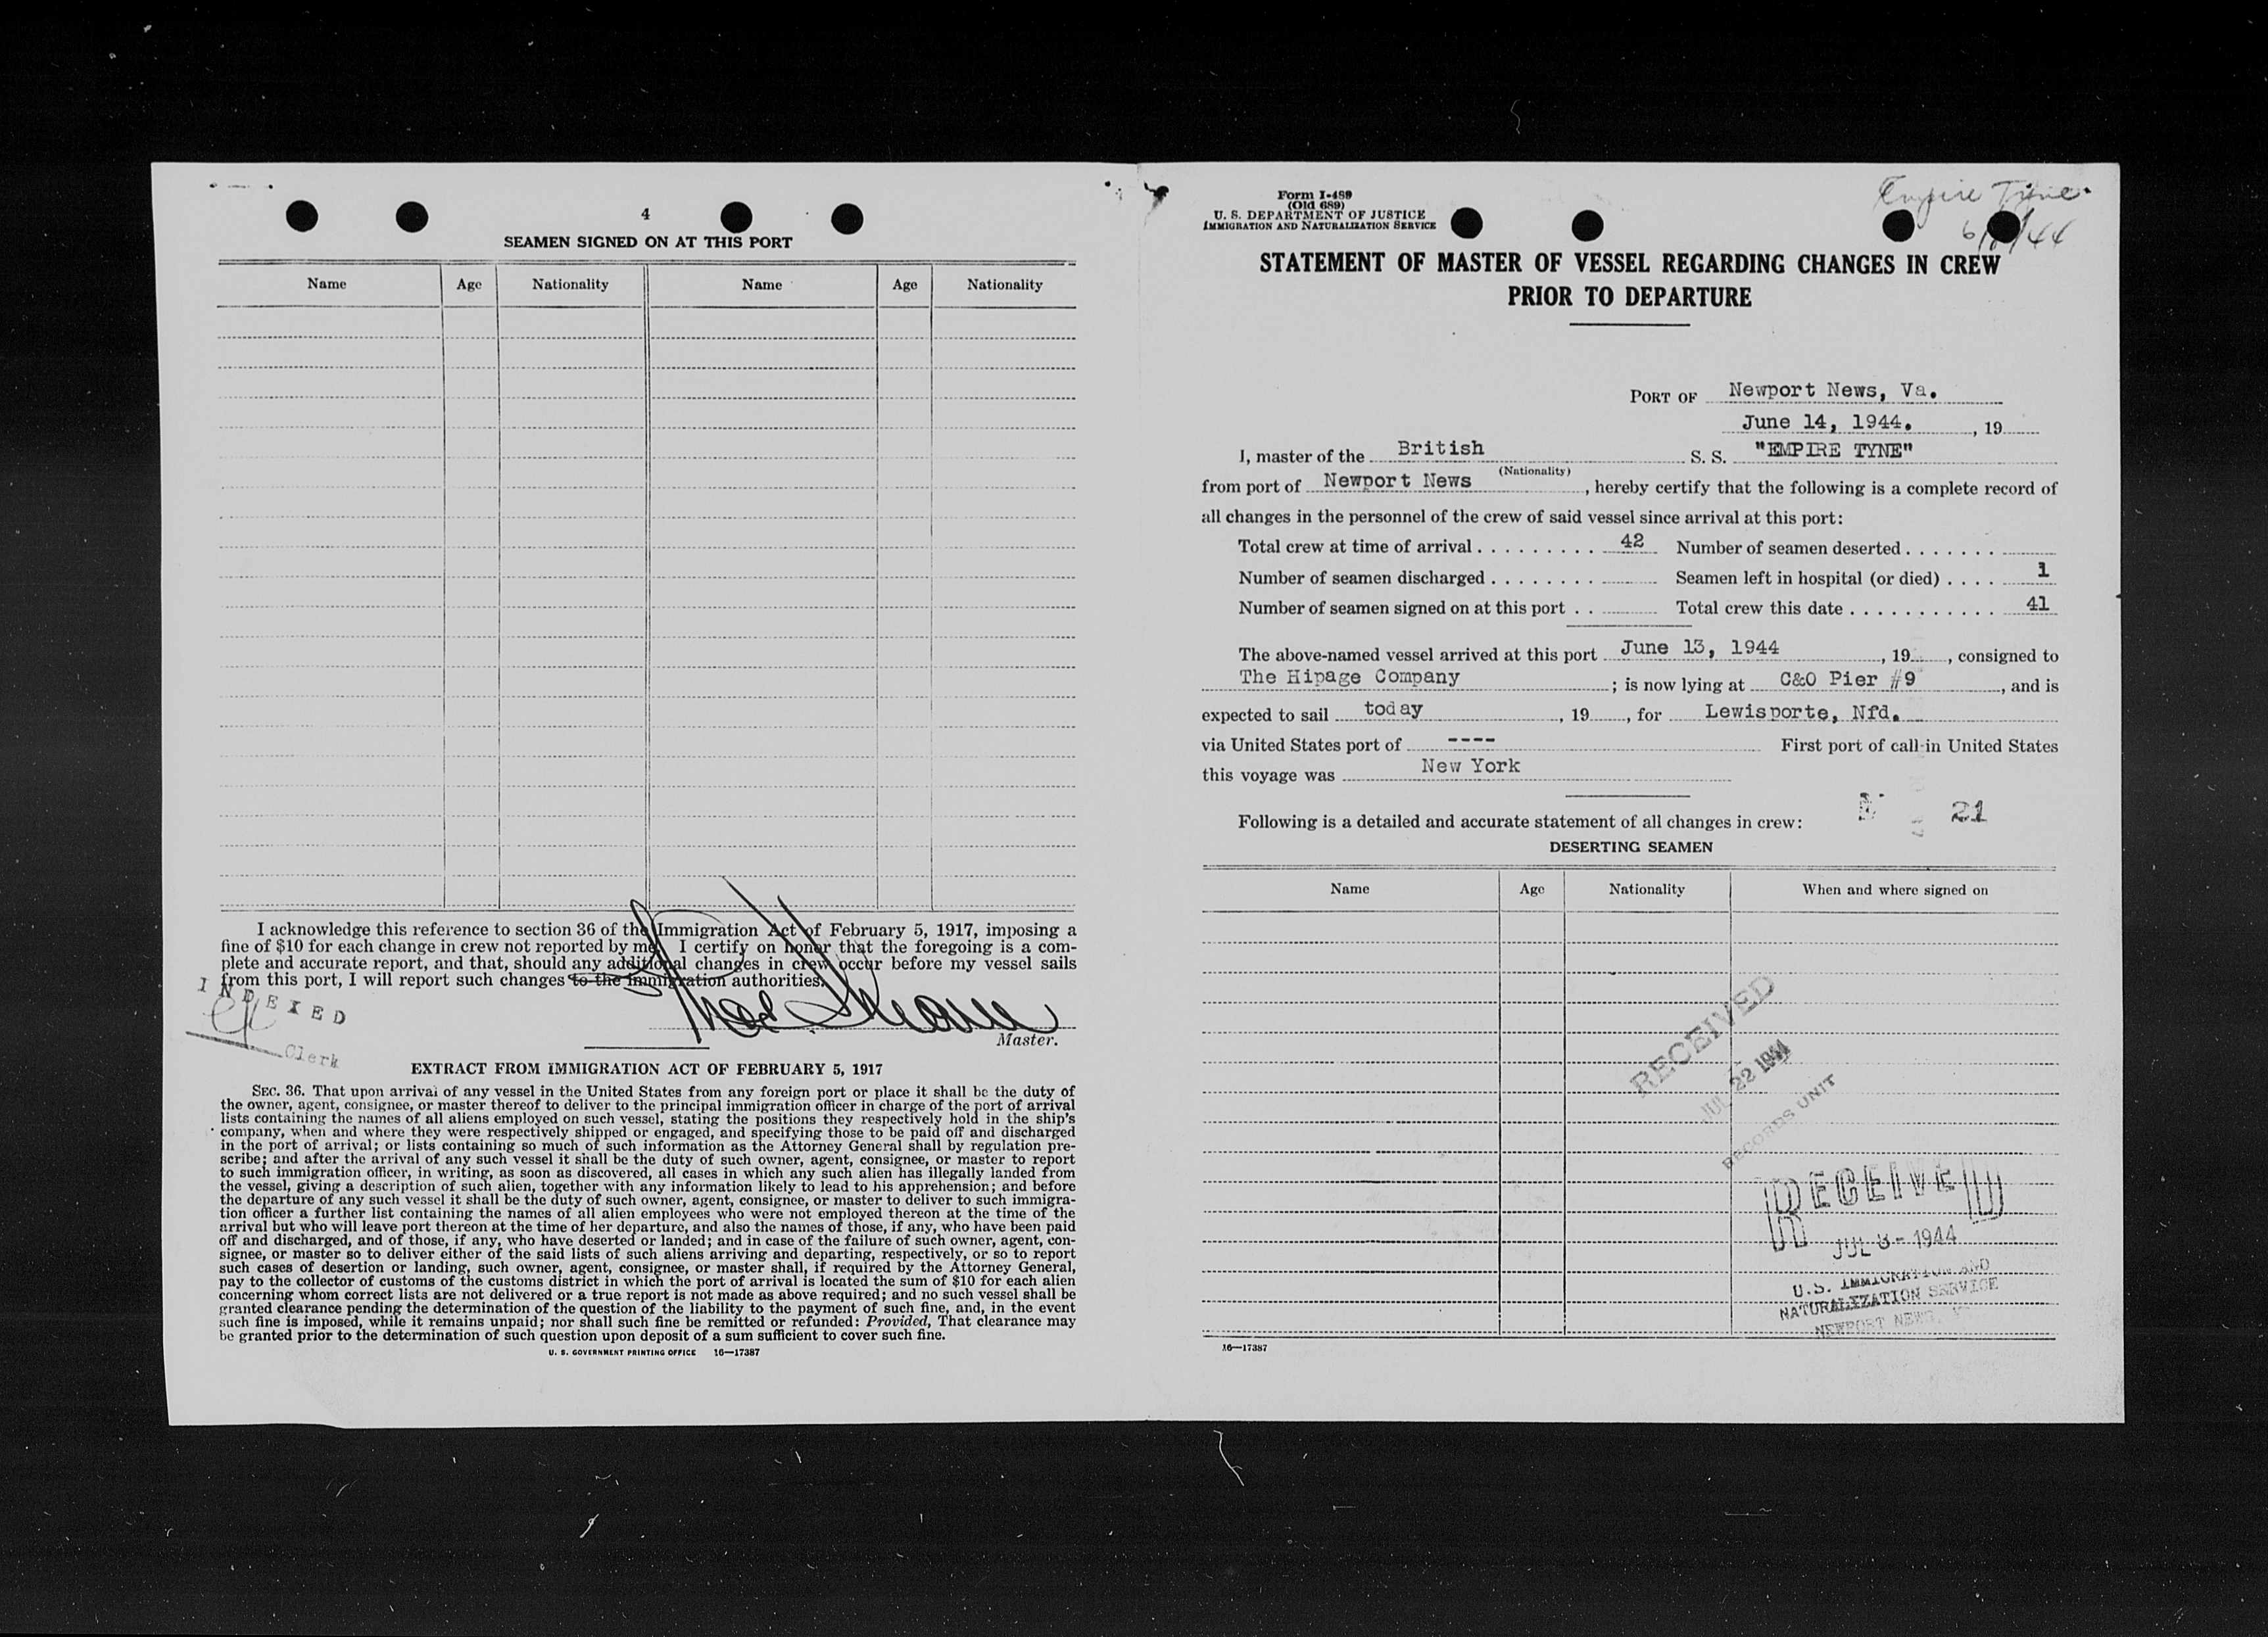 4
SEAMEN SIGNED ON AT THIS PORT
Name Age Nationality Name Age Nationality
I acknowledge this reference to section 36 of the Immigration Act of February 5, 1917, imposing a
fine of $10 for each change in crew not reported by me. I certify on honor that the foregoing is a com-
plete and accurate report, and that, should any additional changes in crew occur before my vessel sails
from this port, I will report such changes to the immigration authorities.
INDEXED
Clerk
Master.
EXTRACT FROM IMMIGRATION ACT OF FEBRUARY 5, 1917
SEC. 36. That upon arrival of any vessel in the United States from any foreign port or place it shall be the duty of
the owner, agent, consignee, or master thereof to deliver to the principal immigration officer in charge of the port of arrival
lists containing the names of all aliens employed on such vessel, stating the positions they respectively hold in the ship's
company, when and where they were respectively shipped or engaged, and specifying those to be paid off and discharged
in the port of arrival; or lists containing so much of such information as the Attorney General shall by regulation pre-
scribe; and after the arrival of any such vessel it shall be the duty of such owner, agent, consignee, or master to report
to such immigration officer, in writing, as soon as discovered, all cases in which any such alien has illegally landed from
the vessel, giving a description of such alien, together with any information likely to lead to his apprehension; and before
the departure of any such vessel it shall be the duty of such owner, agent, consignee, or master to deliver to such immigra-
tion officer a further list containing the names of all alien employees who were not employed thereon at the time of the
arrival but who will leave port thereon at the time of her departure, and also the names of those, if any, who have been paid
off and discharged, and of those, if any, who have deserted or landed; and in case of the failure of such owner, agent, con-
signee, or master so to deliver either of the said lists of such aliens arriving and departing, respectively, or so to report
such cases of desertion or landing, such owner, agent, consignee, or master shall, if required by the Attorney General,
pay to the collector of customs of the customs district in which the port of arrival is located the sum of $10 for each alien
concerning whom correct lists are not delivered or a true report is not made as above required; and no such vessel shall be
granted clearance pending the determination of the question of the liability to the payment of such fine, and, in the event
such fine is imposed, while it remains unpaid; nor shall such fine be remitted or refunded: Provided, That clearance may
be granted prior to the determination of such question upon deposit of a sum sufficient to cover such fine.
U. S. GOVERNMENT PRINTING OFFICE 16—17387
Form I-489
(Old 689)
U. S. DEPARTMENT OF JUSTICE
IMMIGRATION AND NATURALIZATION SERVICE
Empire Tyne
STATEMENT OF MASTER OF VESSEL REGARDING CHANGES IN CREW
PRIOR TO DEPARTURE
PORT OF Newport News, Va.
June 14, 1944. , 19
I, master of the British S. S. "EMPIRE TYNE"
(Nationality)
from port of Newport News , hereby certify that the following is a complete record of
all changes in the personnel of the crew of said vessel since arrival at this port:
Total crew at time of arrival . . . . . . . . . 42 Number of seamen deserted . . . . . . .
Number of seamen discharged . . . . . . . . Seamen left in hospital (or died) . . . . 1
Number of seamen signed on at this port . . Total crew this date . . . . . . . . . . . . 41
The above-named vessel arrived at this port June 13, 1944 , 19 , consigned to
The Hipage Company ; is now lying at C&O Pier #9 , and is
expected to sail today , 19 , for Lewisporte, Nfd.
via United States port of ---- First port of call in United States
this voyage was New York
21
Following is a detailed and accurate statement of all changes in crew:
DESERTING SEAMEN
Name Age Nationality When and where signed on
RECEIVED
JUL 22 1944
RECORDS UNIT
RECEIVED
JUL 3 - 1944
U.S. IMMIGRATION AND
NATURALIZATION SERVICE
NEWPORT NEWS,
16—17387